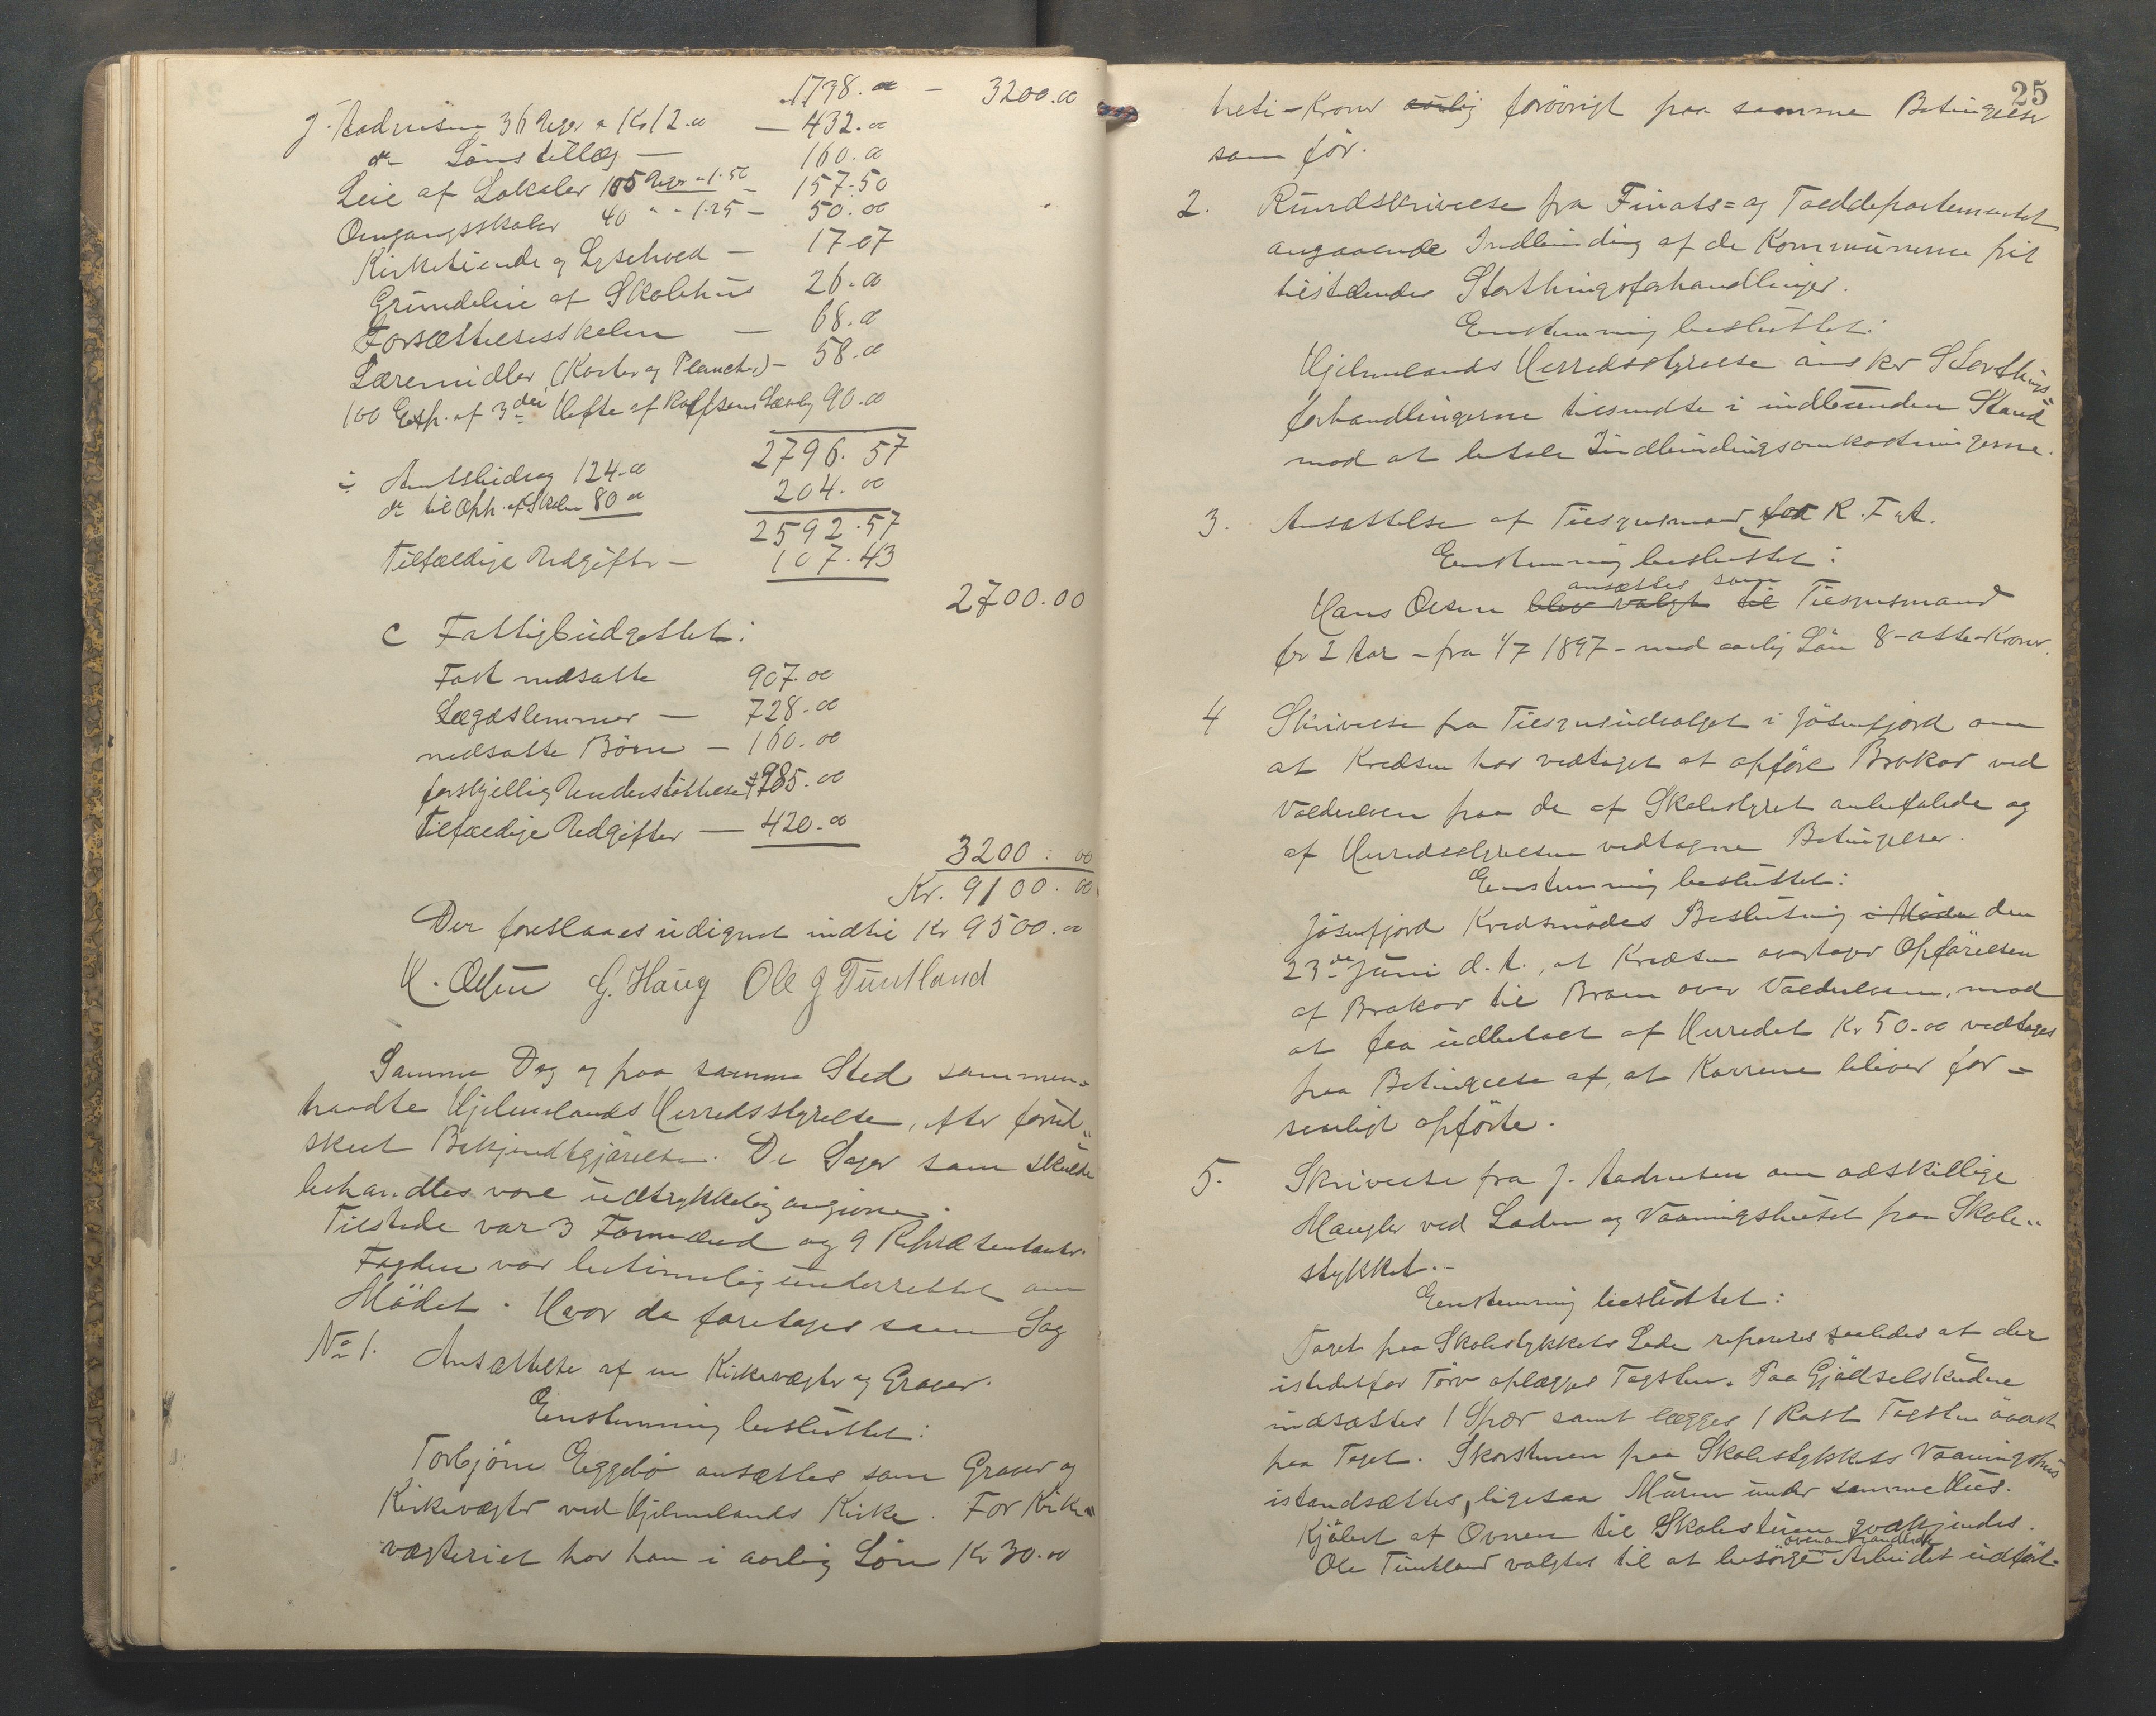 1738.00 - 3200.00
J. Aadnesen 36 Uger a Kr 12.00 — 432.00
do Lønstillæg — 160.00
Leie af Lokaler 105 Uger a 1.50 - 157.50
Omgangsskoler 40 " - 1.25 - 50.00
Kirketiende og Lysehved - 17.07
Grundeleie af Skolehus 26.00
Forsættelsesskolen — 68.00
Læremidler (Karter og Plancher) - 58.00
100 Exp. af 3die Hefte af Rolfsens Læseb. 90.00
2796.57
÷ Amtsbidrag 124.00
do til Oph. af Skolen 80.00 204.00
2592.57
Tilfældige Udgifter — 107.43
2700.00
C Fattigbudgettet:
Fast nedsatte 907.00
Lægdslemmer — 728.00
nedsatte Børn — 160.00
forskjellig Understøttelse 985.00
Tilfældige Udgifter — 420.00
3200:00
Kr. 9100.00
Der foreslaaes udignet indtil Kr 9500.00
H. Olsen G. Haug Ole G Tuntland
Samme Dag og paa samme Sted sammen-
traadte Hjelmelands Herredsstyrelse, efter forud-
skeet Bekjendtgjørelse. De Sager som skulde
behandles vare udtrykkelig angivne.
Tilstede var 3 Formænd og 9 Repræsentanter.
Fogden var betimelig underrettet om
Mødet. Hvor da foretoges som Sag
No 1. Ansættelse af en Kirkevægter og Graver.
Enstemmig besluttet:
Torbjørn Eggebø ansættes som Graver og
Kirkevægter ved Hjelmelands Kirke. For Kirke-
vægteriet har han i aarlig Løn Kr 30.00
25
treti-Kroner aarlig forøvrigt paa samme Betingelser
som før.
2. Rundskrivelse fra Finats= og Tolddepartementet
angaaende Indbinding af de Kommunerne frit
tilstillende Storthingsforhandlinger.
Enstemmig besluttet:
Hjelmelands Herredsstyrelse ønsker Storthings-
forhandlingerne tilsendte i indbunden Stand
mod at betale Indbindingsomkostningerne.
3. Ansættelse af Tilsynsmand for R. F. A.
Enstemmig besluttet:
ansættes som
Hans Olsen blev valgt til Tilsynsmand
for 2 Aar - fra 1/7 1897 - med aarlig Løn 8-otte-Kroner.
4 Skrivelse fra Tilsynsudvalget i Jøsenfjord om
at Kredsen har vedtaget at opføre Brokar ved
Voldelven paa de af Skolestyret anbefalede og
af Herredsstyrelsen vedtagne Betingelser.
Enstemmig besluttet:
Jøsenfjord Kredsmødes Beslutning i Møde den
23de Juni d. A., at Kredsen overtager Opførelsen
af Brokar til Broen over Voldelven, mod
at faa udbetalt af Herredet Kr 50.00 vedtages
paa Betingelse af, at Karrene bliver for-
svarligt opførte.
5. Skrivelse fra J. Aadnesen om adskillige
Mangler ved Laden og Vaaningshuset paa Skole-
stykket.-
Enstemmig besluttet:
Taget paa Skolestykkets Lade reparères saaledes at der
istedetfor Torv oplægges Tagsten. Paa Gjødselskudne
indsættes 1 Spær samt lægges 1 Rast Tagsten øverst
paa Taget. Skorstenen paa Skolestykkets Vaaningshus
istandsættes, ligesaa Muren under samme Hus.
Kjøbet af Ovnen til Skolestuen godkjendes.
ovenanførandlede
Ole Tuntland valgtes til at besørge Arbeidet udført.